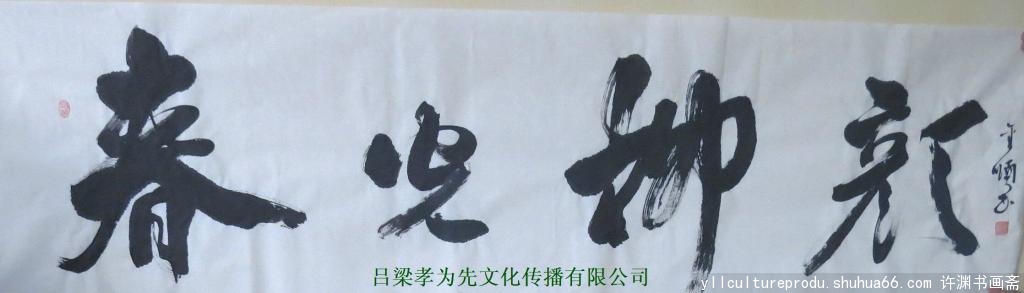 春光柳颜
吕梁孝为先文化传播有限公司
yllcultureprodu.shuhua66.com 许渊书画斋